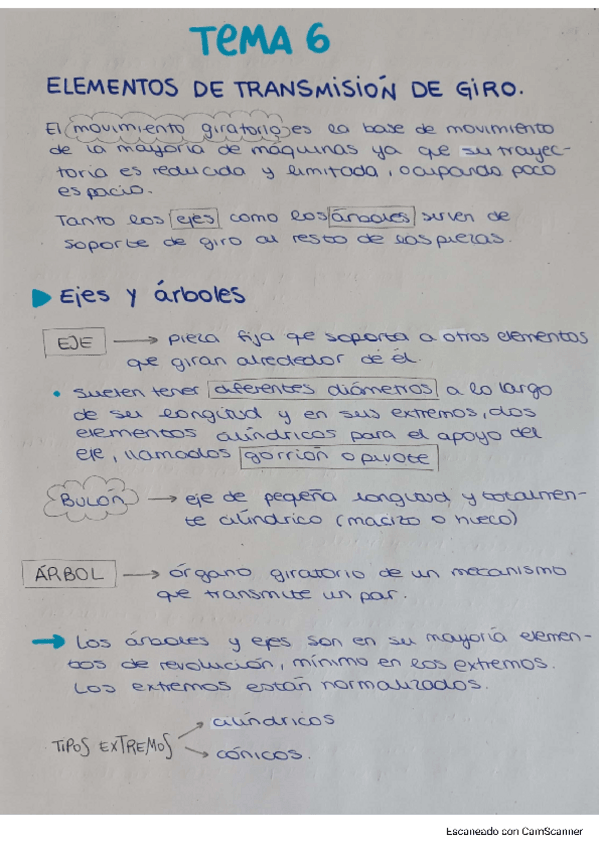 TEMA 6
ELEMENTOS DE TRANSMISIÓN DE GIRO.
El movimiento giratorio es la base de movimiento
de la mayoría de máquinas ya que su trayec-
toria es reducida y limitada, ocupando poco
espacio.
Tanto los ejes como los árboles sirven de
soporte de giro al resto de las piezas.
Ejes y árboles
EJE → pieza fija que soporta a otros elementos
que giran alrededor de él.
• suelen tener diferentes diámetros a lo largo
de su longitud y en sus extremos, dos
elementos cilíndricos para el apoyo del
eje, llamados gorrión o pivote
BULÓN → eje de pequeña longitud y totalmen-
te cilíndrico (macizo o hueco)
ÁRBOL → órgano giratorio de un mecanismo
que transmite un par.
→ Los árboles y ejes son en su mayoría elemen-
tos de revolución, mínimo en los extremos.
Los extremos están normalizados.
TIPOS EXTREMOS → cilíndricos
→ cónicos.
Escaneado con CamScanner